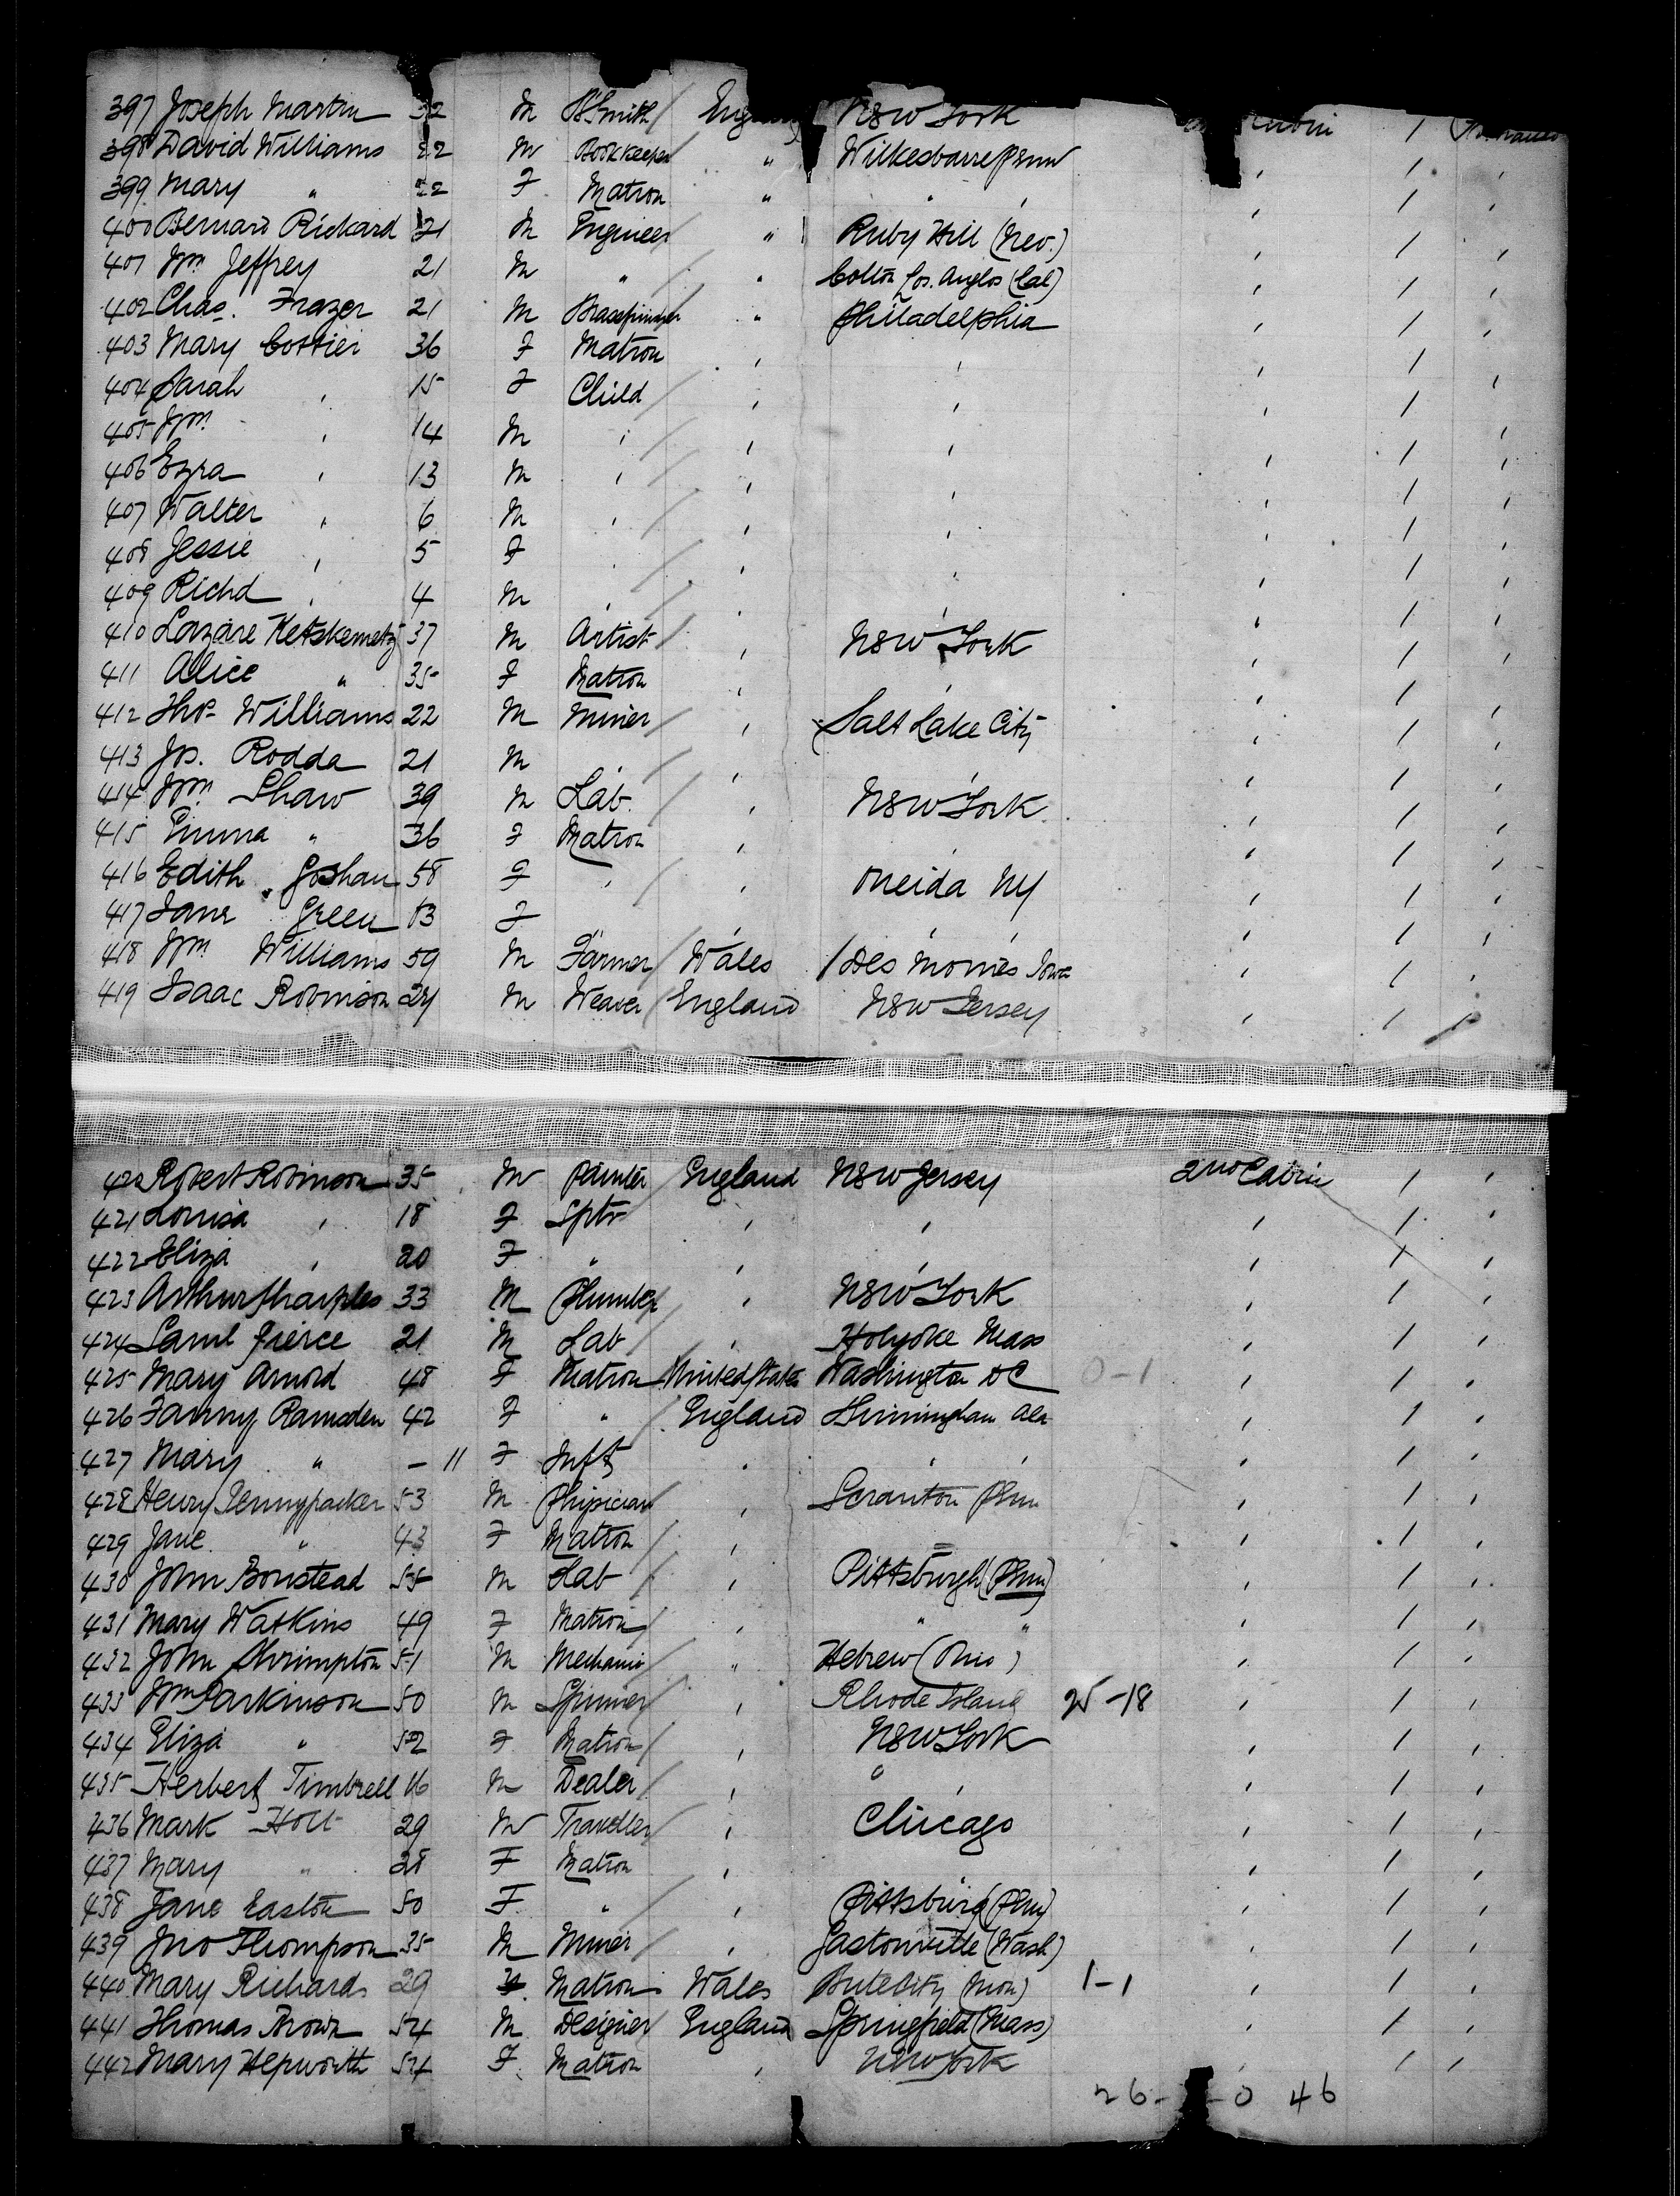 397 Joseph Martin 32 M B'Smith / England New York Cabin 1
398 David Williams 22 M Bookkeeper " Wilkesbarre Penn ' 1 '
399 Mary " 22 F Matron " " ' ' 1 '
400 Bernard Rickard 21 M Engineer " Ruby Hill (Nev.) ' 1 '
401 Wm Jeffrey 21 M " / " Colton Los. Anglos (Cal) ' 1 '
402 Chas. Frazer 21 M / " Philadelphia ' 1 '
403 Mary Cottier 36 F Matron ' ' ' 1 '
404 Sarah ' 15 F Child / ' ' ' 1 '
405 Wm ' 14 M ' / ' ' ' 1 '
406 Ezra ' 13 M ' / ' ' ' 1 '
407 Walter ' 6 M ' / ' ' ' 1 '
408 Jessie ' 5 F ' / ' ' ' 1 '
409 Richd ' 4 M ' / ' ' ' 1 '
410 Lazare Ketskemety 37 M Artist / ' New York ' 1 '
411 Alice " 35 F Matron ' ' ' 1 '
412 Thos Williams 22 M Miner / ' Salt Lake City ' 1 '
413 Js. Rodda 21 M ' / ' ' ' 1 '
414 Wm Shaw 39 M Lab. / ' New York ' 1 '
415 Emma " 36 F Matron ' ' ' 1 '
416 Edith Goshau 58 F ' / ' Oneida NY ' 1 '
417 Jane Green 63 F " ' ' ' ' 1 '
418 Wm Williams 59 M Farmer / Wales / Des Moines Iowa ' 1 '
419 Isaac Robinson 24 M Weaver / England New Jersey ' 1 '
420 Robert Robinson 35 M Painter / England New Jersey 2nd Cabin 1 '
421 Louisa ' 18 F Sptr ' ' ' 1 '
422 Eliza ' 20 F " ' ' ' 1 '
423 Arthur Sharples 33 M Plumber / ' New York ' 1 '
424 Saml Pierce 21 M Lab / ' Holyoke Mass ' 1 '
425 Mary Arnold 48 F Matron United States Washington DC 0-1 ' 1 '
426 Fanny Ramsden 42 F " / England Birmingham Ala ' 1 '
427 Mary " - 11 F Inft ' ' ' ' 1 '
428 Henry Pennypacker 53 M Physician ' Scranton Penn ' 1 '
429 Jane " 43 F Matron / ' = ' 1 '
430 John Boustead 55 M Lab / ' Pittsburgh (Penn) ' 1 '
431 Mary Watkins 49 F Matron / ' " " ' 1 '
432 John Shrimpton 51 M Mechanic / " Hebrew (Ohio) ' 1 '
433 Wm Parkinson 50 M Spinner / ' Rhode Island 25-18 ' 1 '
434 Eliza " 52 F Matron / ' New York ' 1 '
435 Herbert Timbrell 16 M Dealer / ' " ' ' 1 '
436 Mark Holt 29 M Traveller / ' Chicago ' 1 '
437 Mary " 28 F Matron ' ' ' 1 '
438 Jane Easton 50 F " / ' Pittsburg (Penn) ' 1 '
439 Jno Thompson 35 M Miner / ' (Wash) ' 1 '
440 Mary Richards 29 Matron Wales Butte City (Mon) 1-1 ' 1 '
441 Thomas Brown 54 M Designer / England Springfield (Mass) ' 1 '
442 Mary Hepworth 54 F Matron ' New York ' 1 '
26- -0 46